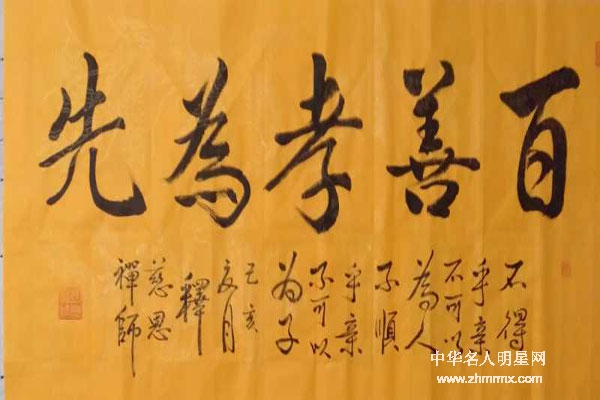 百善孝為先
不得
乎親
不可以
為人
不順
乎親
不可以
为子
己亥
夏月
釋
慈恩
禪師
中华名人明星网
www.zhmrmx.com